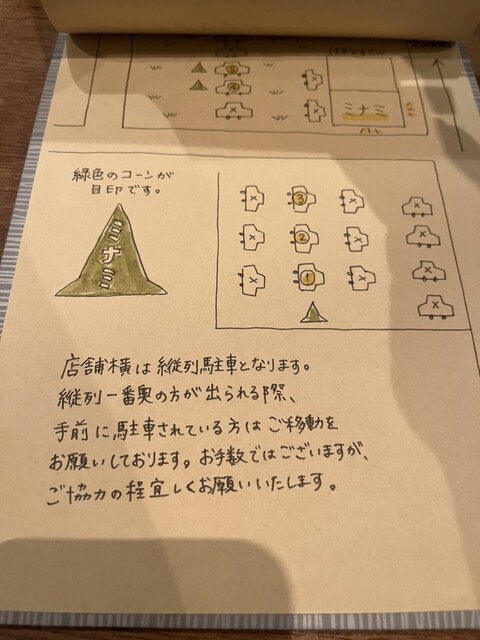 ⑤
④
ミナミ
緑色のコーンが
目印です。
ミナミ
③
②
①
店舗横は縦列駐車となります。
縦列一番奥の方が出られる際、
手前に駐車されている方はご移動を
お願いしております。お手数ではございますが、
ご協力の程宜しくお願いいたします。